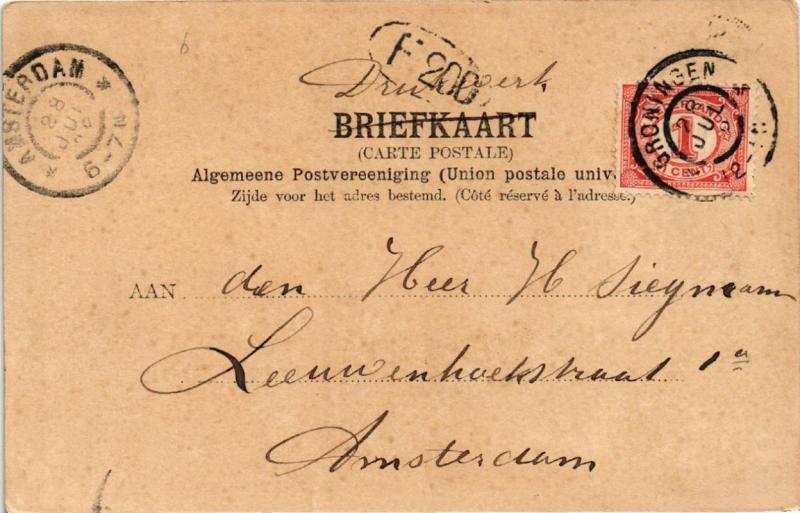 AMSTERDAM
28 JUL
6-7N
F 200
GRONINGEN
28 JUL
12-1N
1
CENT
Drukwerk
BRIEFKAART
(CARTE POSTALE)
Algemeene Postvereeniging (Union postale univ
Zijde voor het adres bestemd. (Côté réservé à l'adresse.)
AAN den Heer H Siegmann
Leeuwenhoekstraat 1a
Amsterdam